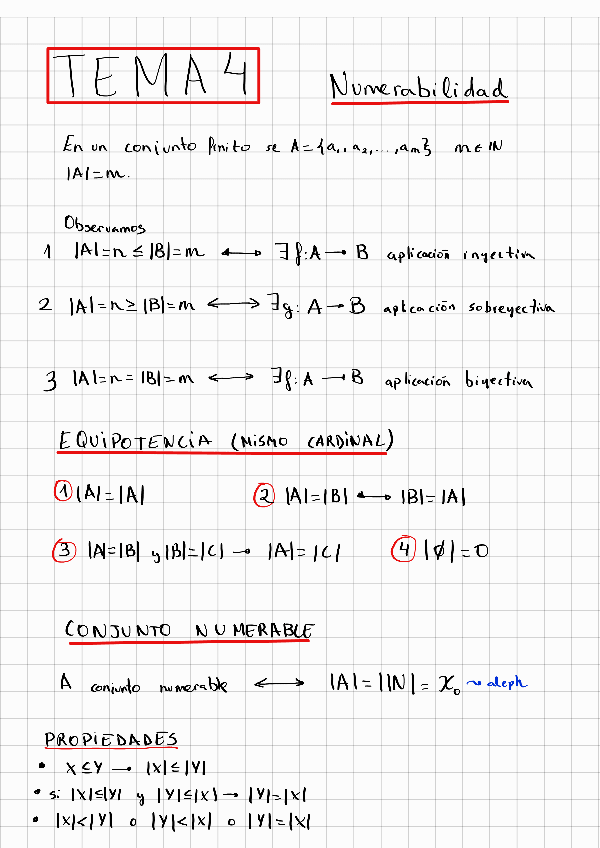 TEMA 4
Numerabilidad
En un conjunto finito se A={a₁,a₂,...,aₘ} m∈ℕ
|A|=m.
Observamos
1 |A|=n≤|B|=m ⟷ ∃f:A→B aplicación inyectiva
2 |A|=n≥|B|=m ⟷ ∃g:A→B aplicación sobreyectiva
3 |A|=n=|B|=m ⟷ ∃f:A→B aplicación biyectiva
EQUIPOTENCIA (MISMO CARDINAL)
① |A|=|A| ② |A|=|B| ⟷ |B|=|A|
③ |A|=|B| y |B|=|C| → |A|=|C| ④ |∅|=0
CONJUNTO NUMERABLE
A conjunto numerable ⟷ |A|=|ℕ|=ℵ₀ ⤳ aleph
PROPIEDADES
• X≤Y → |X|≤|Y|
• si |X|≤|Y| y |Y|≤|X| → |Y|=|X|
• |X|<|Y| o |Y|<|X| o |Y|=|X|